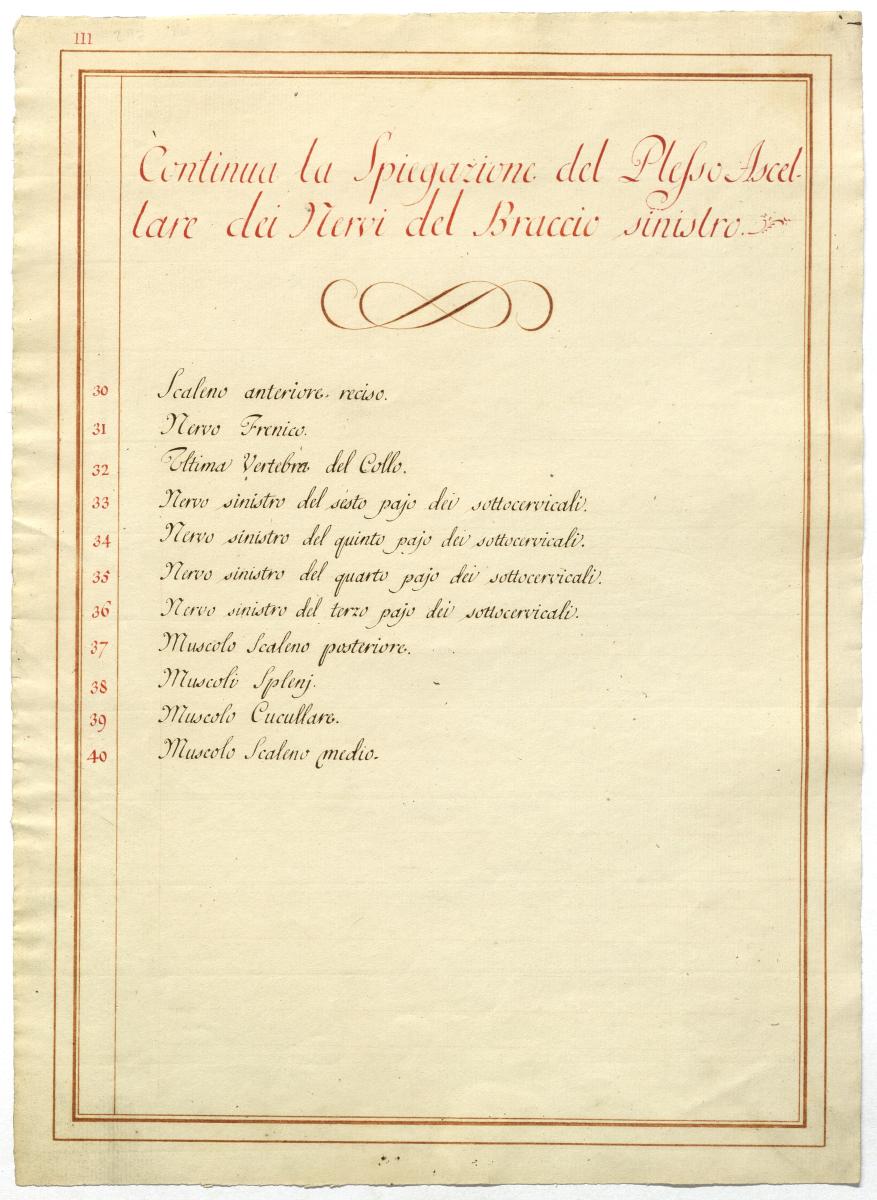 III
Continua la Spiegazione del Plesso Ascel-
lare dei Nervi del Braccio sinistro.
30 Scaleno anteriore reciso.
31 Nervo Frenico.
32 Ultima Vertebra del Collo.
33 Nervo sinistro del sesto pajo dei sottocervicali.
34 Nervo sinistro del quinto pajo dei sottocervicali.
35 Nervo sinistro del quarto pajo dei sottocervicali.
36 Nervo sinistro del terzo pajo dei sottocervicali.
37 Muscolo Scaleno posteriore.
38 Muscoli Splenj.
39 Muscolo Cucullare.
40 Muscolo Scaleno medio.